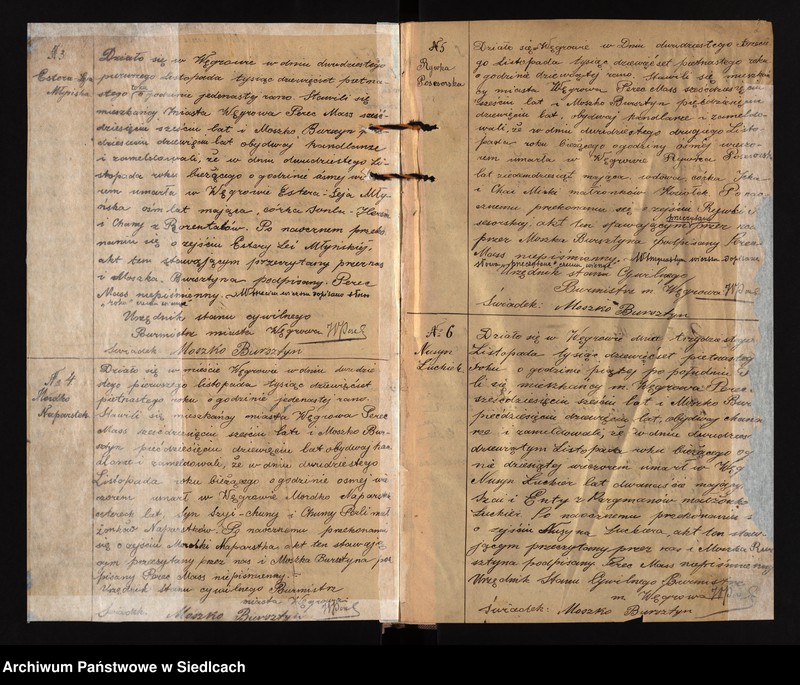 N. 3
Estera Leja
Młyńska
Działo się w Węgrowie w dniu dwudziestego
pierwszego Listopada tysiąc dziewięćset piętna-
stego roku o godzinie jedenastej rano. Stawili się
mieszkańcy miasta Węgrowa Perec Mass sześć-
dziesięciu sześciu lat i Moszko Bursztyn
dziewięciu lat obydwaj handlarze
i zameldowali, że w dniu dwudziestego Li-
stopada roku bieżącego o godzinie ósmej wie-
rem umarła w Węgrowie Estera-Leja Mły-
ńska ośm lat mająca, córka
i Chumy z Rozentalów. Po naocznem przeko-
naniu się o zejściu Estery Lei Młyńskiej,
akt ten stawającym przeczytany przez nas
i Moszka Bursztyna podpisany. Perec
Mass niepiśmienny.
Urzędnik stanu cywilnego
Burmistrz miasta Węgrowa
Świadek: Moszko Bursztyn
No 4
Mordko
Naparstek
Działo się w mieście Węgrowie w dniu dwudzie-
stego pierwszego listopada tysiąc dziewięćset
piętnastego roku o godzinie jedenastej rano.
Stawili się mieszkańcy miasta Węgrowa Perec
Mass sześćdziesięciu sześciu lat i Moszko Bur-
sztyn pięćdziesięciu dziewięciu lat obydwaj han-
dlarze i zameldowali, że w dniu dwudziestego
Listopada roku bieżącego o godzinie ósmej wie-
czorem umarł w Węgrowie Mordko Naparstek
czterech lat, syn Szyi-Chuny i Chumy Perli mał-
żonków Naparstków. Po naocznemu przekonaniu
się o zejściu Mordki Naparstka, akt ten stawają-
cym przeczytany przez nas i Moszka Bursztyna pod-
pisany Perec Mass niepiśmienny.
Urzędnik stanu cywilnego Burmistrz
miasta Węgrowa
Świadek: Moszko Bursztyn
N 5
Rywka
Działo się w Węgrowie w Dniu dwudziestego trzecie-
go Listopada tysiąc dziewięćset piętnastego roku
o godzinie dziewiątej rano. Stawili się mieszkań-
cy miasta Węgrowa Perec Mass sześćdziesięciu
sześciu lat i Moszko Bursztyn pięćdziesięciu
dziewięciu lat, obydwaj handlarze i zameldo-
wali, że w dniu dwudziestego drugiego Listo-
pada roku bieżącego o godziny ósmej wieczo-
rem umarła w Węgrowie Rywka
lat siedemdziesiąt mająca wdowa, córka Icka
i Chai Mirki małżonków Po nao-
cznemu przekonaniu się o zejściu Rywki
akt ten stawającym przeczytany przez nas
przez Moszka Bursztyna podpisany Perec
Mass niepiśmienny.
Urzędnik stanu Cywilnego
Burmistrz m. Węgrowa
Świadek: Moszko Bursztyn
No 6
Nusyn
Działo się w Węgrowie dnia trzydziestego
Listopada tysiąc dziewięćset piętnastego
roku o godzinie piątej po południu. Stawi-
li się mieszkańcy m. Węgrowa Perec
sześćdziesięciu sześciu lat i Moszko Bur
pięćdziesięciu dziewięciu lat, obydwaj
i zameldowali, że w dniu dwudziestym
dziewiątym Listopada roku bieżącego o go
nie dziesiątej wieczorem umarł w Węg
Nusyn lat dwanaście mający
i Enty z małżonków
Po naocznemu przekonaniu się
o zejściu Nusyna akt ten stawa-
jącym przeczytany przez nas i Moszka Bur
sztyna podpisany. Perec Mass niepiśmienny
Urzędnik Stanu Cywilnego Burmistrz
m. Węgrowa
Świadek: Moszko Bursztyn
Archiwum Państwowe w Siedlcach